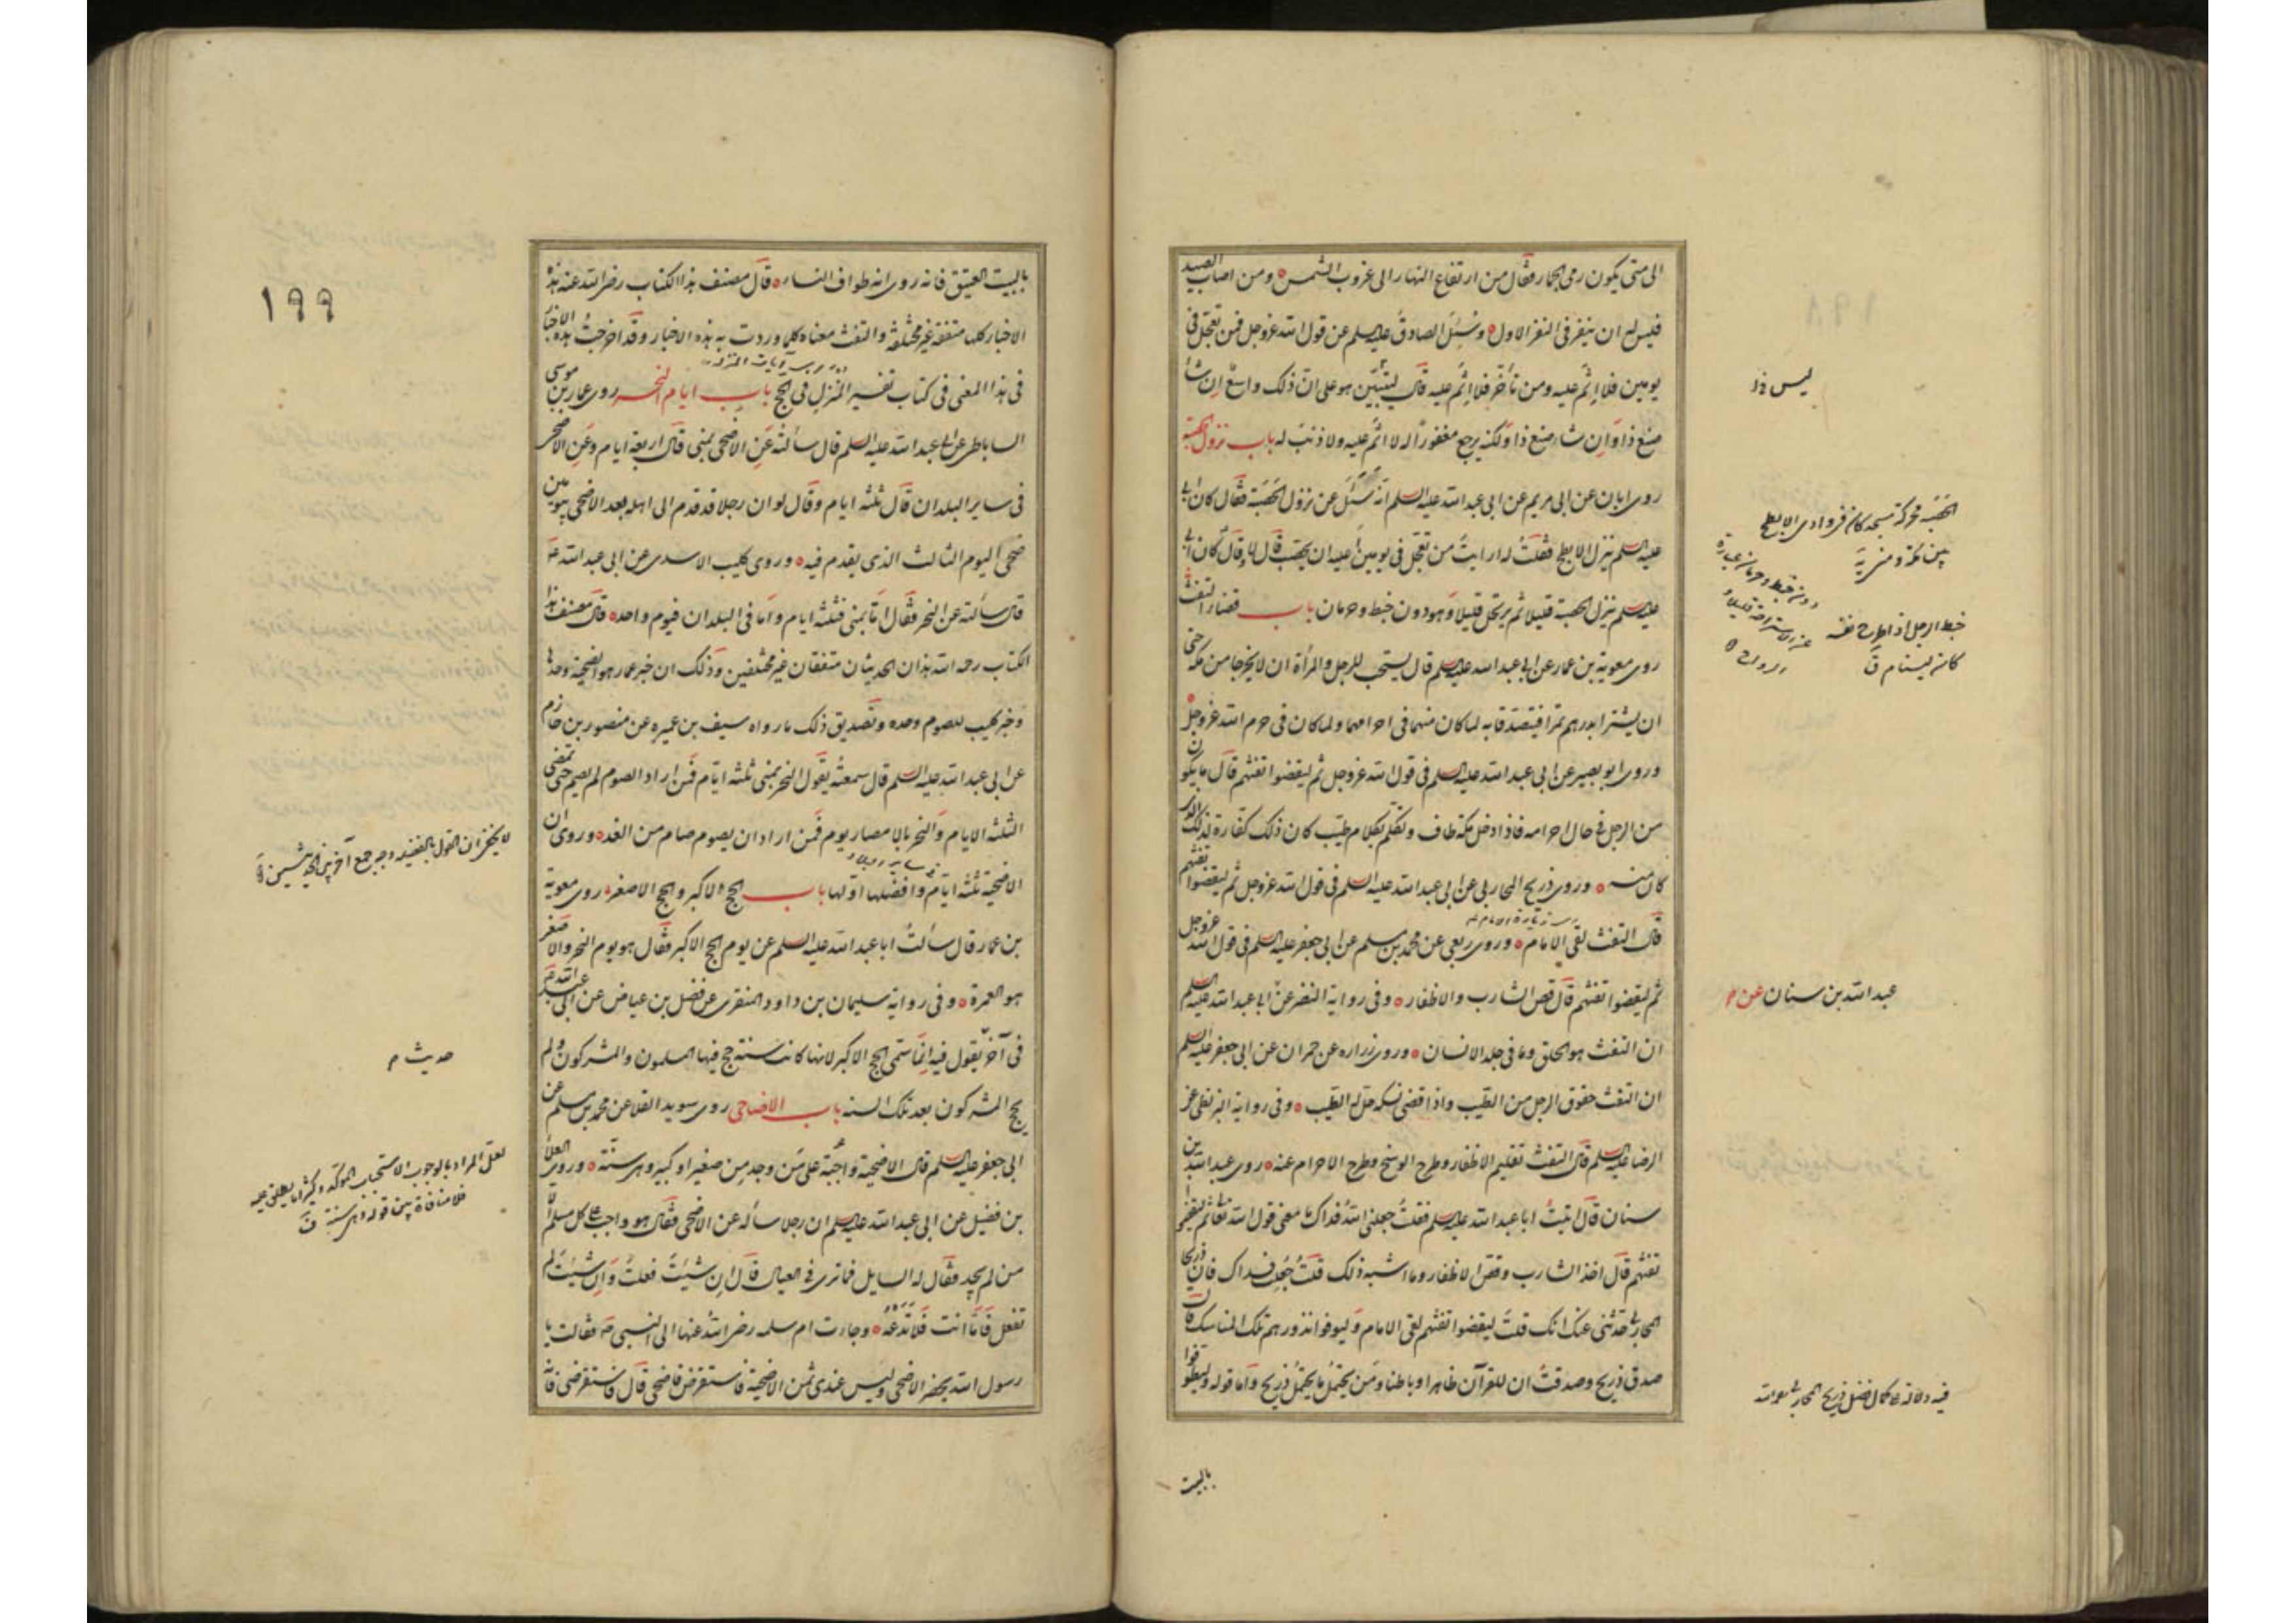 الى متى يكون رمى الجمار فقال من ارتفاع النهار الى غروب الشمس ومن اصاب الصيد
فليس له ان ينفر فى النفر الاول وسئل الصادق عليه السلم عن قول الله عزوجل فمن تعجل فى
يومين فلا اثم عليه ومن تأخر فلا اثم عليه قال ليتبين هو على ان ذلك واسع ان شاء
صنع ذا وان شاء صنع ذا ولكنه يرجع مغفورا له لا اثم عليه ولا ذنب له باب نزول الحصبة
روى ابان عن ابى مريم عن ابى عبد الله عليه السلم انه سئل عن نزول الحصبة فقال كان ابى
عليه السلم ينزل الابطح فقلت له ارايت من تعجل فى يومين اعليه ان يحصب قال لا وقال كان ابى
عليه السلم ينزل الحصبة قليلا ثم يرتحل قليلا وهو دون خبط وحرمان باب قضاء التفث
روى معوية بن عمار عن ابى عبد الله عليه السلم قال يستحب للرجل والمرأة ان لا يخرجا من مكة حتى
ان يشترا بدرهم تمرا فيتصدقا به لما كان منهما فى احرامهما ولما كان فى حرم الله عزوجل
وروى ابو بصير عن ابى عبد الله عليه السلم فى قول الله عزوجل ثم ليقضوا تفثهم قال ما يكون
من الرجل فى حال احرامه فاذا دخل مكة طاف وتكلم بكلام طيب كان ذلك كفارة لذلك الذى
كان منه وروى ذريح المحاربى عن ابى عبد الله عليه السلم فى قول الله عزوجل ثم ليقضوا تفثهم
قال التفث لقى الامام وروى ربعى عن محمد بن مسلم عن ابى جعفر عليه السلم فى قول الله عزوجل
ثم ليقضوا تفثهم قال قص الشارب والاظفار وفى رواية النضر عن ابى عبد الله عليه السلم
ان التفث هو الحلق وما فى جلد الانسان وروى زراره عن حمران عن ابى جعفر عليه السلم
ان التفث حفوف الرجل من الطيب واذا قضى نسكه حل له الطيب وفى رواية البزنطى عن
الرضا عليه السلم قال التفث تقليم الاظفار وطرح الوسخ وطرح الاحرام عنه روى عبد الله بن
سنان قال اتيت ابا عبد الله عليه السلم فقلت جعلنى الله فداك ما معنى قول الله تعالى ثم ليقضوا
تفثهم قال اخذ الشارب وقص الاظفار وما اشبه ذلك قلت جعلت فداك فان ذريحا
المحاربى حدثنى عنك انك قلت ليقضوا تفثهم لقى الامام وليوفوا نذورهم تلك المناسك قال
صدق ذريح وصدقت ان للقرآن ظاهرا وباطنا ومن يحتمل ما يحتمل ذريح واما قوله وليطوفوا
بالبيت
ليس فى
الحصبة محركة مسجد كان فى وادى الابطح
بين مكة ومنى
خبط الرجل اذا طرح نفسه
كان لينام ق
عبد الله بن سنان عن م
فيه دلالة على كمال فضل ذريح المحاربى رحمه الله
١٩٩
بالبيت العتيق فانه روى انه طواف النساء قال مصنف هذا الكتاب رضى الله عنه هذه
الاخبار كلها متفقة غير مختلفة والتفث معناه كلما وردت به هذه الاخبار وقد اخرجت هذه الاخبار
فى هذا المعنى فى كتاب تفسير المنزل فى الحج باب ايام النحر روى عمار بن موسى
الساباطى عن ابى عبد الله عليه السلم قال سألته عن الاضحى بمنى قال اربعة ايام وعن الاضحى
فى ساير البلدان قال ثلثه ايام وقال لو ان رجلا قدم الى اهله بعد الاضحى بيومين
ضحى اليوم الثالث الذى يقدم فيه وروى كليب الاسدى عن ابى عبد الله ع
قال سألته عن النحر فقال اما بمنى فثلثه ايام واما فى البلدان فيوم واحد قال مصنف هذا
الكتاب رحمه الله هذان الحديثان متفقان غير مختلفين وذلك ان خبر عمار هو للضحية وحدها
وخبر كليب للصوم وحده وتصديق ذلك ما رواه سيف بن عميره عن منصور بن حازم
عن ابى عبد الله عليه السلم قال سمعته يقول النحر بمنى ثلثه ايام فمن اراد الصوم لم يصم حتى تمضى
الثلثه الايام والنحر بالامصار يوم فمن اراد ان يصوم صام من الغد وروى ان
الاضحية ثلثه ايام وافضلها اولها باب الحج الاكبر والحج الاصغر روى معوية
بن عمار قال سألت ابا عبد الله عليه السلم عن يوم الحج الاكبر فقال هو يوم النحر والاصغر
هو العمرة وفى رواية سليمان بن داود المنقرى عن فضيل بن عياض عن ابى عبد الله ع
فى آخره يقول فيه انما سمى الحج الاكبر لانها كانت سنة حج فيها المسلمون والمشركون ولم
يحج المشركون بعد تلك السنه باب الاضاحى روى سويد القلا عن محمد بن مسلم عن
ابى جعفر عليه السلم قال الاضحية واجبة على من وجد من صغير او كبير وهى سنة وروى العلا
بن فضيل عن ابى عبد الله عليه السلم ان رجلا سأله عن الاضحى فقال هو واجب على كل مسلم الا
من لم يجد فقال له السايل فما ترى فى العيال قال ان شئت فعلت وان شئت لم
تفعل فاما انت فلا تدعه وجاءت ام سلمه رضى الله عنها الى النبى ص فقالت يا
رسول الله يحضر الاضحى وليس عندى ثمن الاضحية فاستقرض فاضحى قال فاستقرضى فانه
حديث م
لعل المراد بالوجوب الاستحباب المؤكد وكثيرا ما يطلق عليه
فلا منافاة بين قوله وهى سنة ق